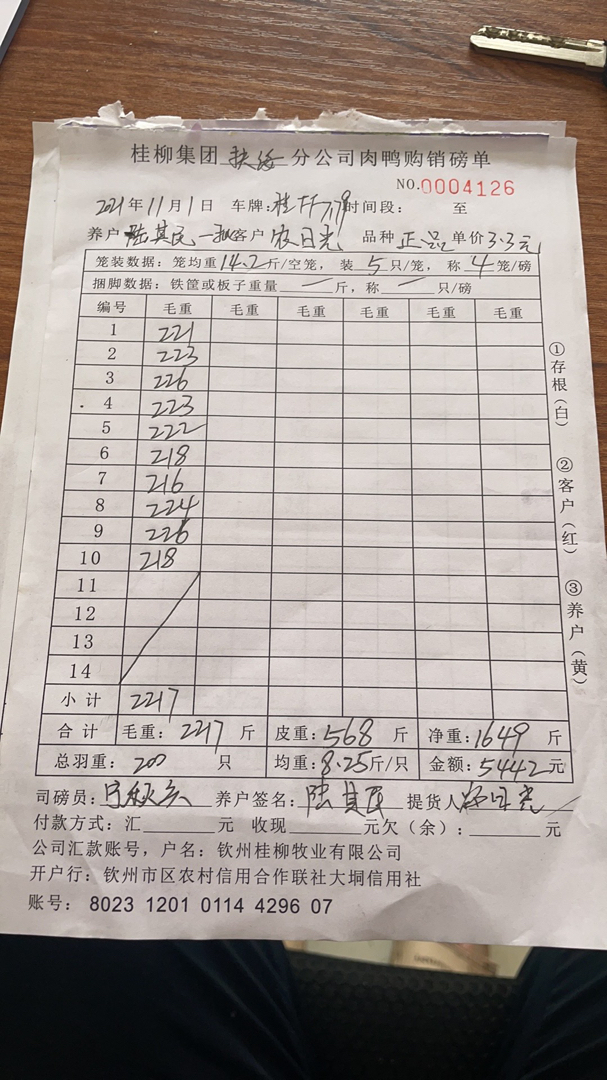 桂柳集团扶绥分公司肉鸭购销磅单
NO.0004126
2021年11月1日 车牌:桂 时间段: 至
养户 陆其民 一批 客户 农日光 品种 正品 单价 3.3元
笼装数据:笼均重14.2斤/空笼,装5只/笼,称4笼/磅
捆脚数据:铁筐或板子重量 一 斤,称 一 只/磅
编号 毛重 毛重 毛重 毛重 毛重 毛重
1 221
2 223
3 226
4 223
5 222
6 218
7 216
8 224
9 226
10 218
11
12
13
14
小计 2217
合计 毛重:2217斤 皮重:568斤 净重:1649斤
总羽重:200只 均重:8.25斤/只 金额:5442元
司磅员: 养户签名:陆其民 提货人
付款方式:汇 元 收现 元欠(余): 元
公司汇款账号,户名:钦州桂柳牧业有限公司
开户行:钦州市区农村信用合作联社大垌信用社
账号: 8023 1201 0114 4296 07
①存根(白)
②客户(红)
③养户(黄)